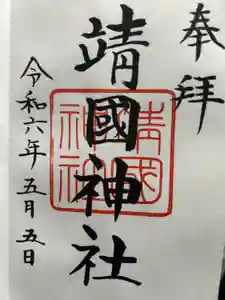 奉拝
靖國神社
靖國神社
令和六年五月五日